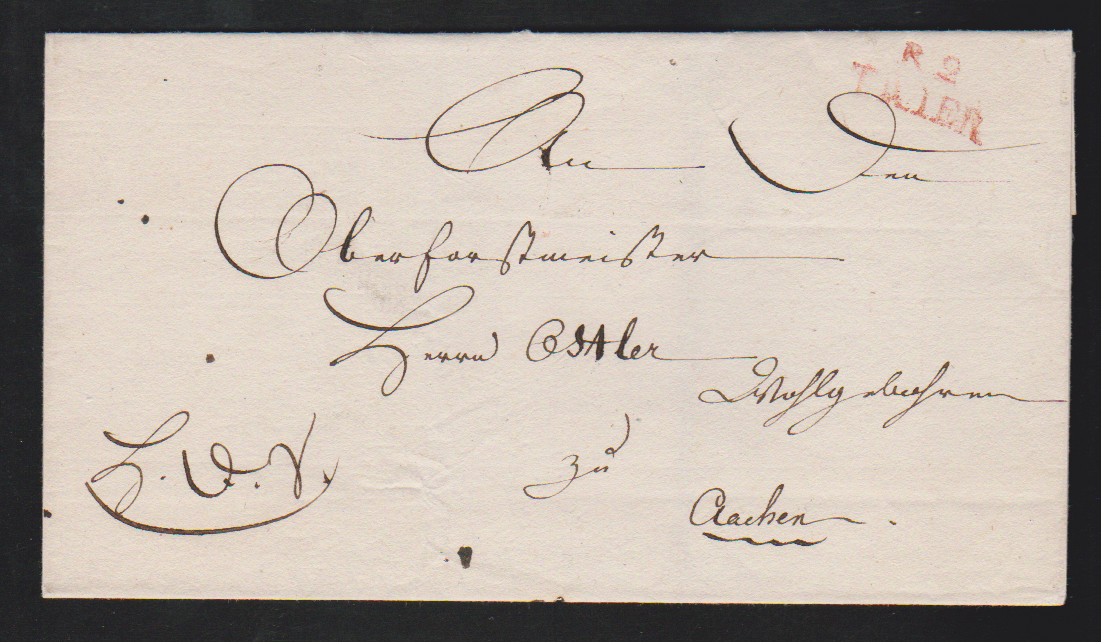 R 2
TRIER
An Den
Oberforstmeister
Herrn
Wohlgebohren
H. D. S.
zu
Aachen.